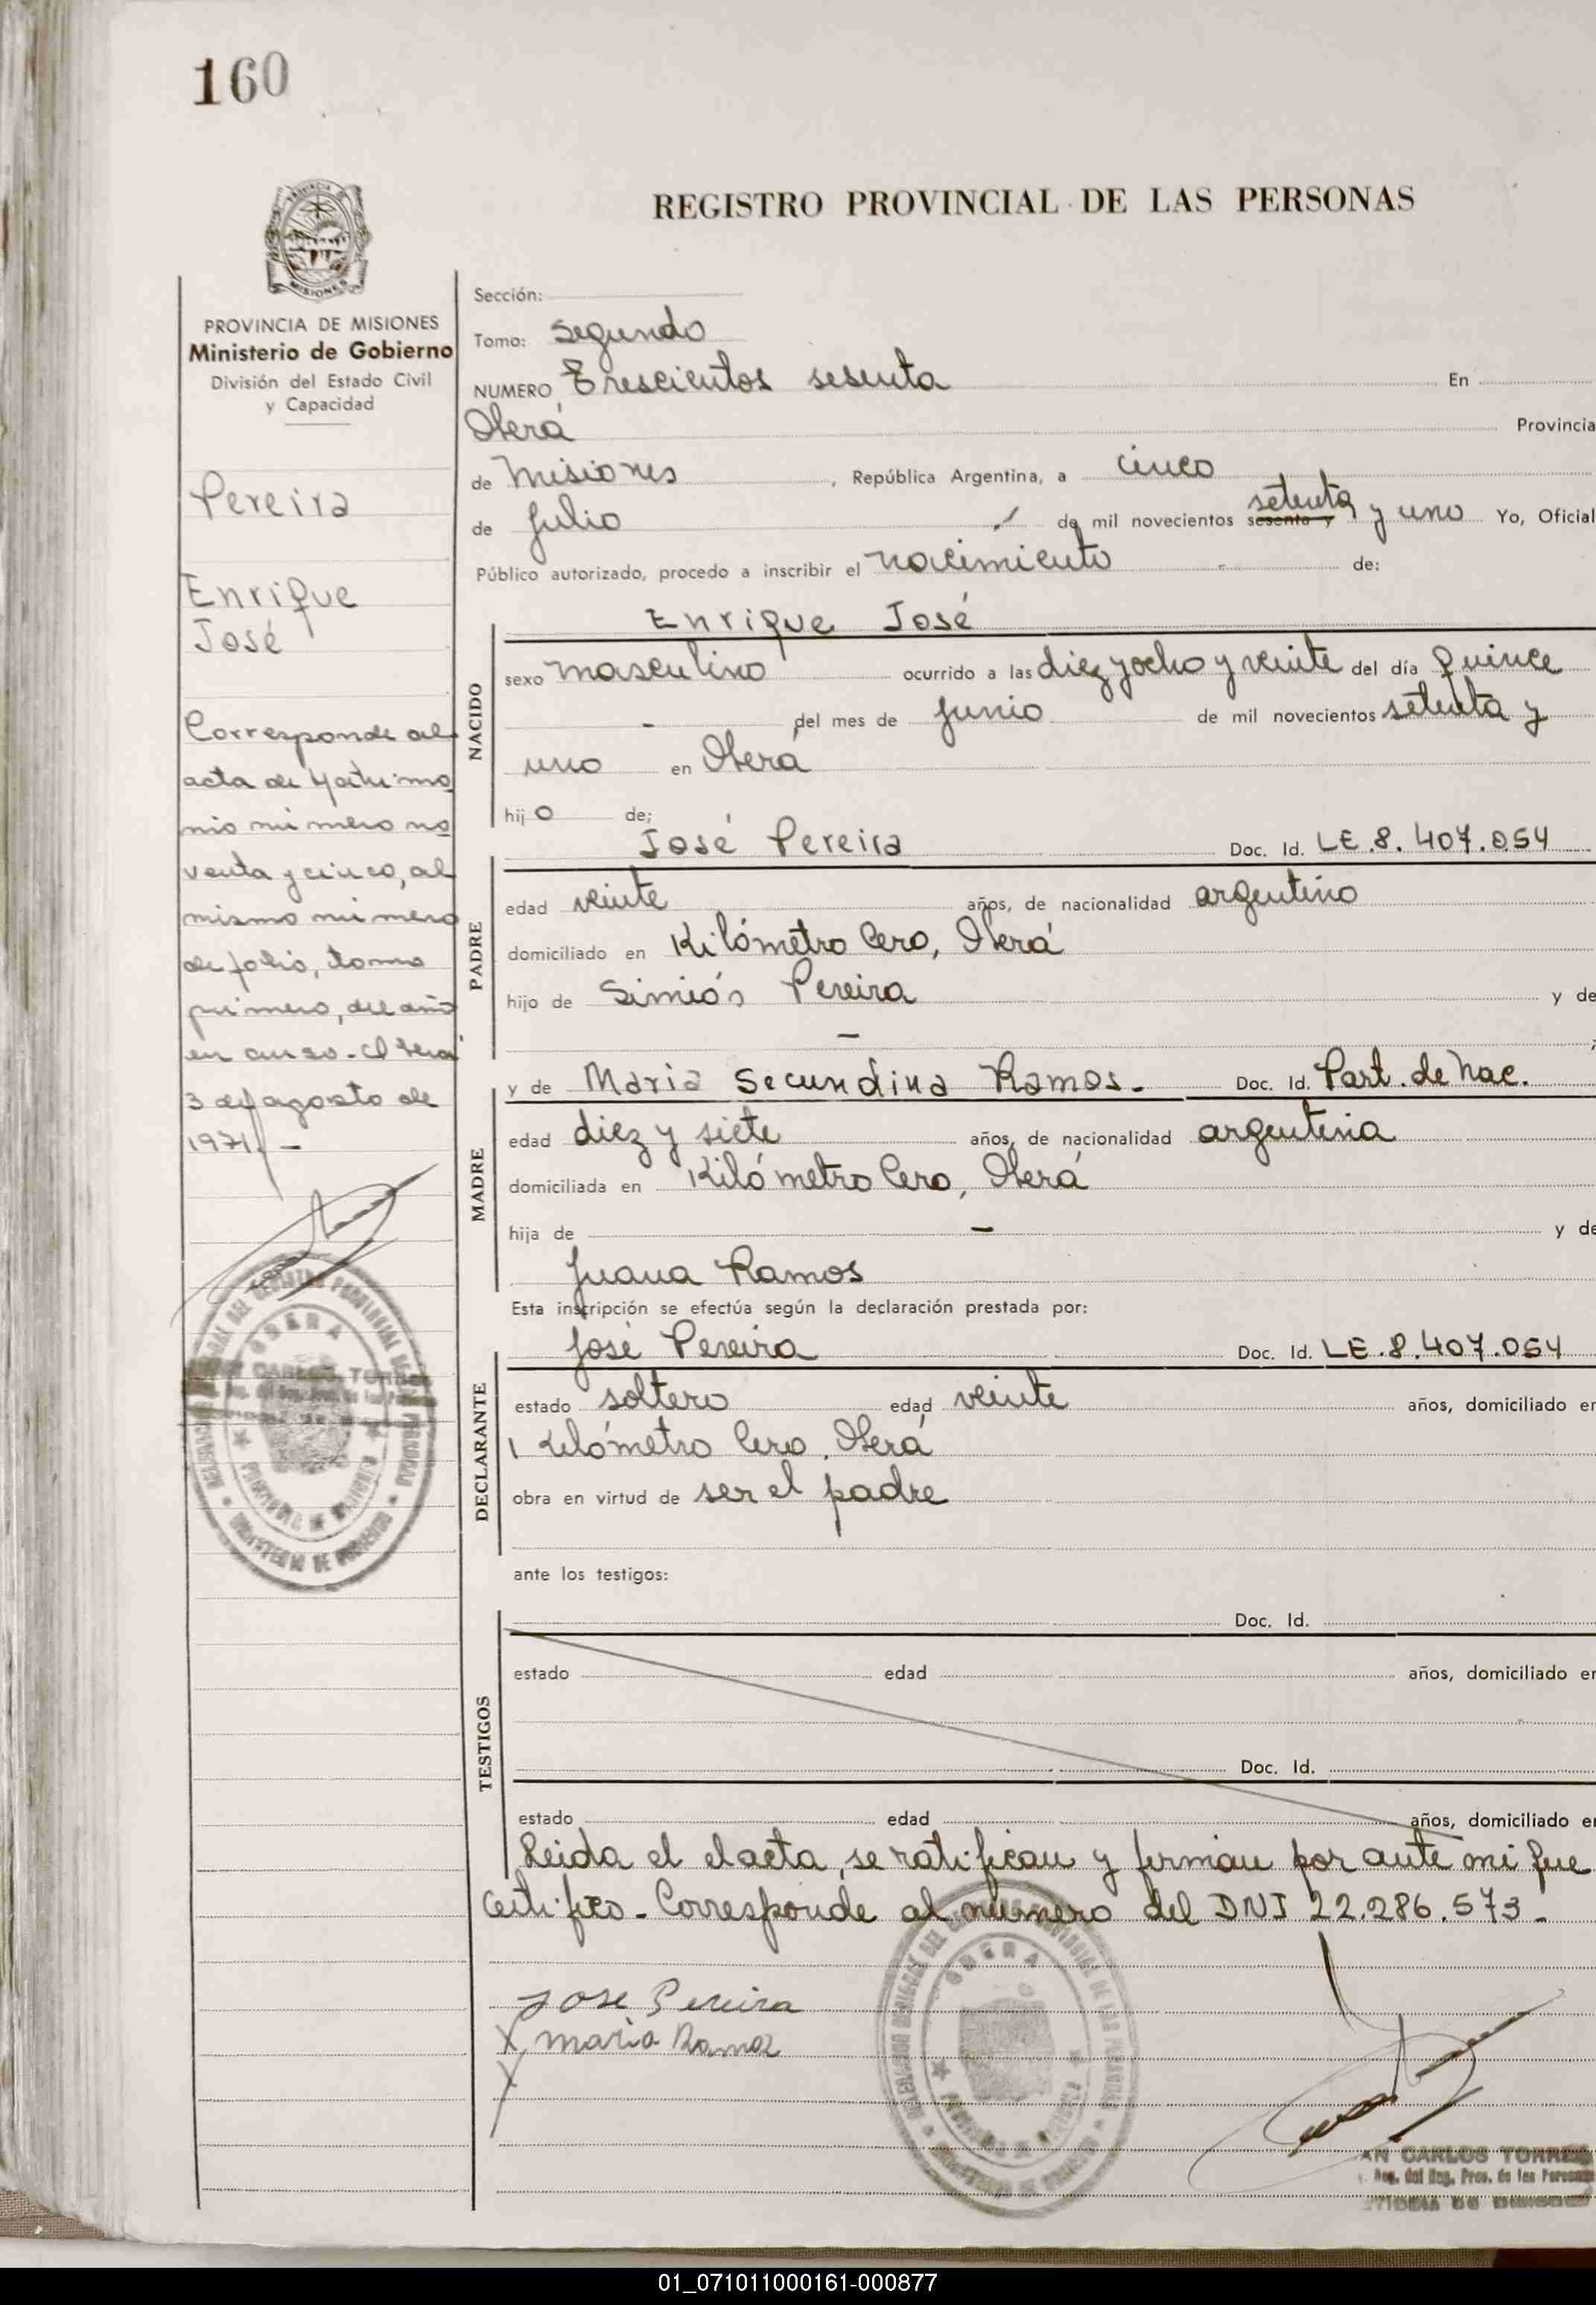 160
REGISTRO PROVINCIAL DE LAS PERSONAS
PROVINCIA DE MISIONES
Ministerio de Gobierno
División del Estado Civil
y Capacidad
Pereira
Enrique
José
Corresponde al
acta de Matrimo
nio número no
venta y cinco, al
mismo número
de folio, tomo
primero, del año
en curso - Oberá
3 de agosto de
1971. -
Sección:
Tomo: Segundo
NUMERO Trescientos sesenta En
Oberá Provincia
de Misiones, República Argentina, a cinco
de Julio de mil novecientos sesenta y setenta y uno Yo, Oficial
Público autorizado, procedo a inscribir el nacimiento de:
Enrique José
NACIDO
sexo masculino ocurrido a las diez y ocho y veinte del día quince
- del mes de Junio de mil novecientos setenta y
uno en Oberá
hijo de;
José Pereira Doc. Id. LE.8.407.054
PADRE
edad veinte años, de nacionalidad argentino
domiciliado en Kilómetro Cero, Oberá
hijo de Pereira y de
-
y de Maria Secundina Ramos. Doc. Id. Part. de Nac.
MADRE
edad diez y siete años, de nacionalidad argentina
domiciliada en Kilómetro Cero, Oberá
hija de - y de
Juana Ramos
Esta inscripción se efectúa según la declaración prestada por:
José Pereira Doc. Id. LE.8.407.054
DECLARANTE
estado soltero edad veinte años, domiciliado en
Kilómetro Cero, Oberá
obra en virtud de ser el padre
ante los testigos:
Doc. Id.
TESTIGOS
estado edad años, domiciliado en
Doc. Id.
estado edad años, domiciliado en
Leida el el acta, se ratifican y firman por ante mi que
certifico - Corresponde al número del DNI 22.286.573 -
Jose Pereira
Maria Ramos
CARLOS TORRES
Reg. Prov. de las Personas
01_071011000161-000877